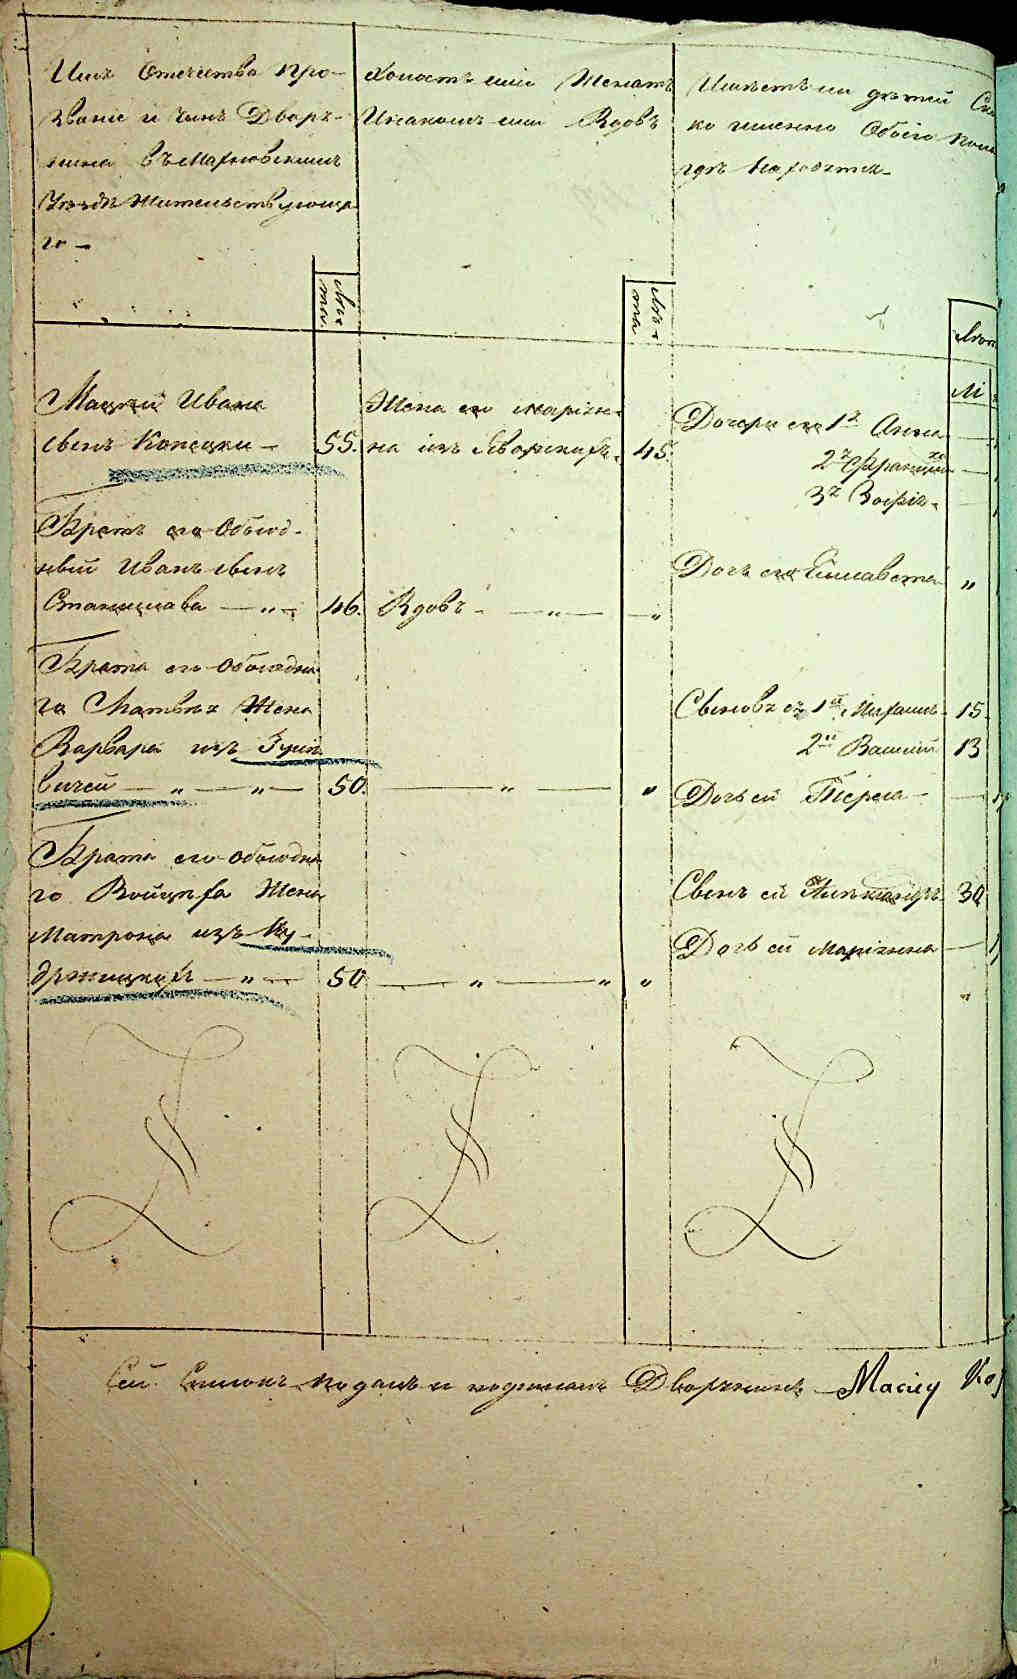 Имя Отечество про-
званіе и Чинъ Дворя-
нина въ Махновскомъ
Уѣздѣ Жительствующа
го —
Лѣ-
та.
Холостъ или Женатъ
На комъ или Вдовъ
Лѣ-
та
Имѣетъ ли дѣтей Ск
ко именно Обоего пола
гдѣ находятся
Лѣт
М
Мацѣй Ивана
сынъ Копецки — 55.
Жена его Маріян-
на изъ 45.
Дочери его 1я Анна
2я Францишка
3я Зофія
Братъ его Обоюд-
ный Иванъ сынъ
Станислава — „ — 46.
Вдовъ — „ — „
Дочь его Елисавета „
Брата его Обоюдна
го Матвѣя Жена
Варвара изъ Зулин
вичей — „ — „ — 50.
— „ — „
Сыновья ея 1й 15.
2й Василій 13
Дочь ей Тереса —
Брата его Обоюдна
го Войцѣха Жена
Матрона изъ Ку-
држицкихъ — „ — 50
— „ — „ „
Сынъ ей Александръ 30
Дочь ей Маріянна —
Сей Списокъ подалъ и подписалъ Дворянинъ — Maciey Ko